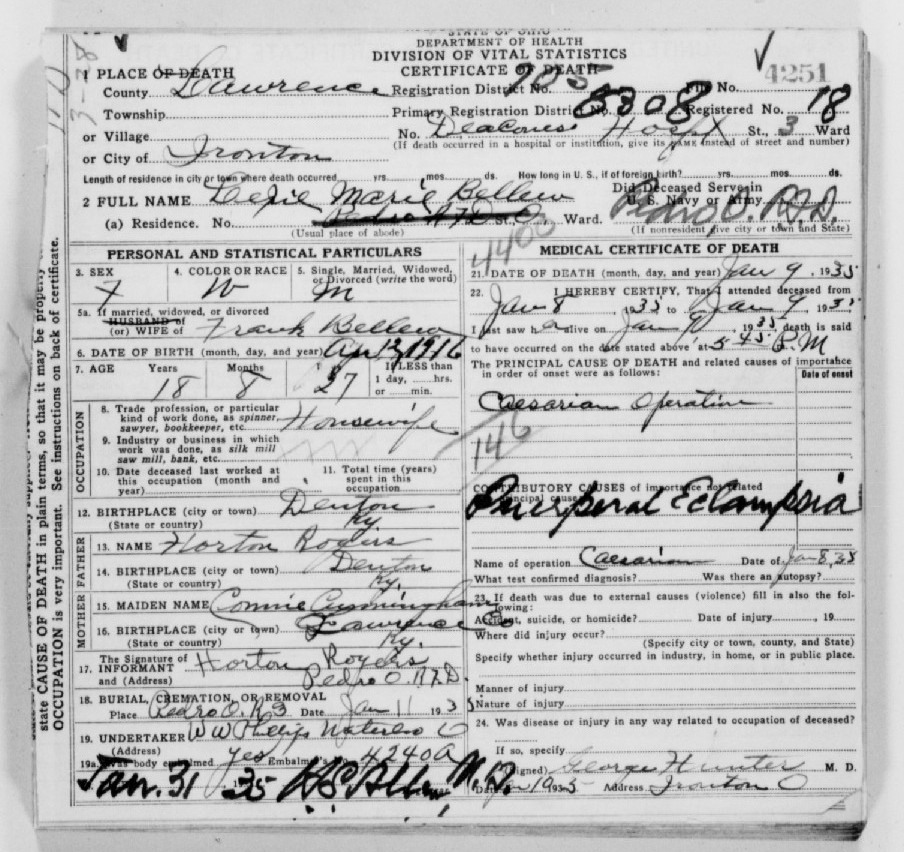 STATE OF OHIO
DEPARTMENT OF HEALTH
DIVISION OF VITAL STATISTICS
CERTIFICATE OF DEATH
4251
1 PLACE OF DEATH
County Lawrence Registration District No. 705 File No.
Township Primary Registration District No. 8308 Registered No. 18
or Village No. Deaconess Hosp X St., 3 Ward
(If death occurred in a hospital or institution, give its NAME instead of street and number)
or City of Ironton
Length of residence in city or town where death occurred yrs. mos. ds. How long in U. S., if of foreign birth? yrs. mos. ds.
2 FULL NAME Marie Bellew Did Deceased Serve in U. S. Navy or Army
(a) Residence. No. St., Ward. Pedro O. R.D.
(Usual place of abode) (If nonresident give city or town and State)
4400
PERSONAL AND STATISTICAL PARTICULARS
3. SEX F
4. COLOR OR RACE W
5. Single, Married, Widowed, or Divorced (write the word) M
5a. If married, widowed, or divorced
HUSBAND of
(or) WIFE of Frank Bellew
6. DATE OF BIRTH (month, day, and year) Apr 12, 1916
7. AGE Years 18 Months 8 27 If LESS than 1 day, hrs. or min.
OCCUPATION
8. Trade profession, or particular kind of work done, as spinner, sawyer, bookkeeper, etc. Housewife
9. Industry or business in which work was done, as silk mill saw mill, bank, etc.
10. Date deceased last worked at this occupation (month and year)
11. Total time (years) spent in this occupation
12. BIRTHPLACE (city or town) Denton
(State or country) Ky.
FATHER
13. NAME Horton Rogers
14. BIRTHPLACE (city or town) Denton
(State or country) Ky.
MOTHER
15. MAIDEN NAME Connie Cunningham
16. BIRTHPLACE (city or town) Lawrence Co
(State or country) Ky.
17. The Signature of INFORMANT Horton Rogers
and (Address) Pedro O. R.F.D.
18. BURIAL, CREMATION, OR REMOVAL
Place Pedro O. R3 Date Jan 11 1935
19. UNDERTAKER W W Phillips Waterloo O
(Address)
19a. Was body embalmed yes Embalmer's No. 4240A
Jan. 31 35 M.D.
MEDICAL CERTIFICATE OF DEATH
21. DATE OF DEATH (month, day, and year) Jan 9, 1935
22. I HEREBY CERTIFY, That I attended deceased from
Jan 8, 1935 to Jan 9, 1935
I last saw h alive on Jan 9, 1935 death is said
to have occurred on the date stated above at 5 45 P.M
The PRINCIPAL CAUSE OF DEATH and related causes of importance in order of onset were as follows:
Date of onset
Caesarian Operation
146
CONTRIBUTORY CAUSES of importance not related to principal cause
Puerperal Eclampsia
Name of operation Caesarian Date of Jan 8, 35
What test confirmed diagnosis? Was there an autopsy?
23. If death was due to external causes (violence) fill in also the following:
Accident, suicide, or homicide? Date of injury, 19
Where did injury occur?
(Specify city or town, county, and State)
Specify whether injury occurred in industry, in home, or in public place.
Manner of injury
Nature of injury
24. Was disease or injury in any way related to occupation of deceased?
If so, specify
(Signed) George Hunter M. D.
Date 1935 Address Ironton O
state CAUSE OF DEATH in plain terms, so that it may be properly
OCCUPATION is very important. See instructions on back of certificate.